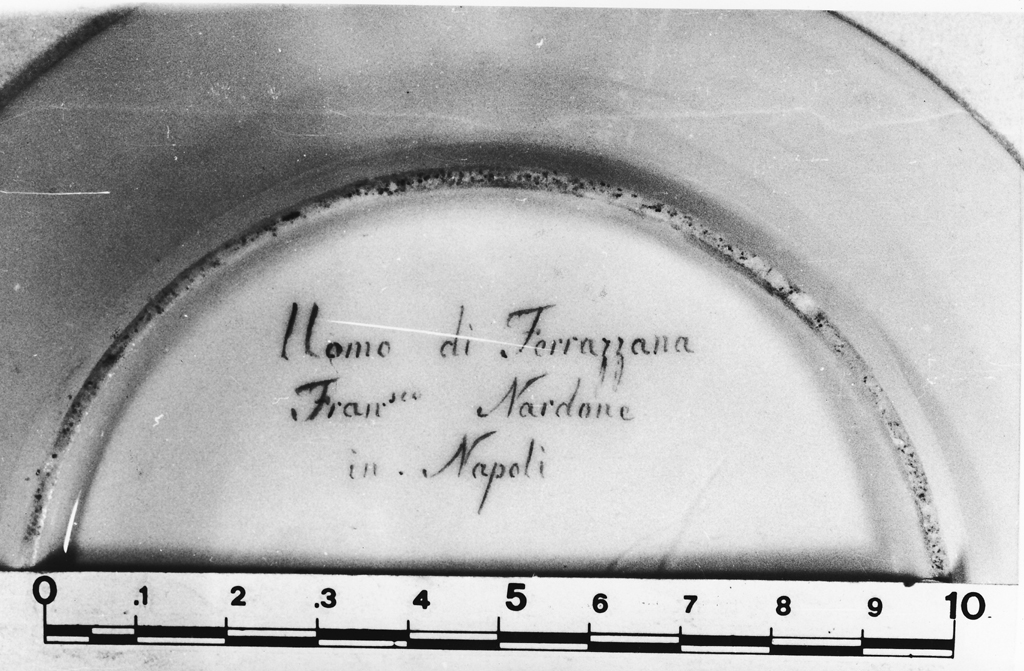 Uomo di Ferrazzana
Fran.sco Nardone
in . Napoli
0 .1 2 .3 4 5 6 7 8 9 10